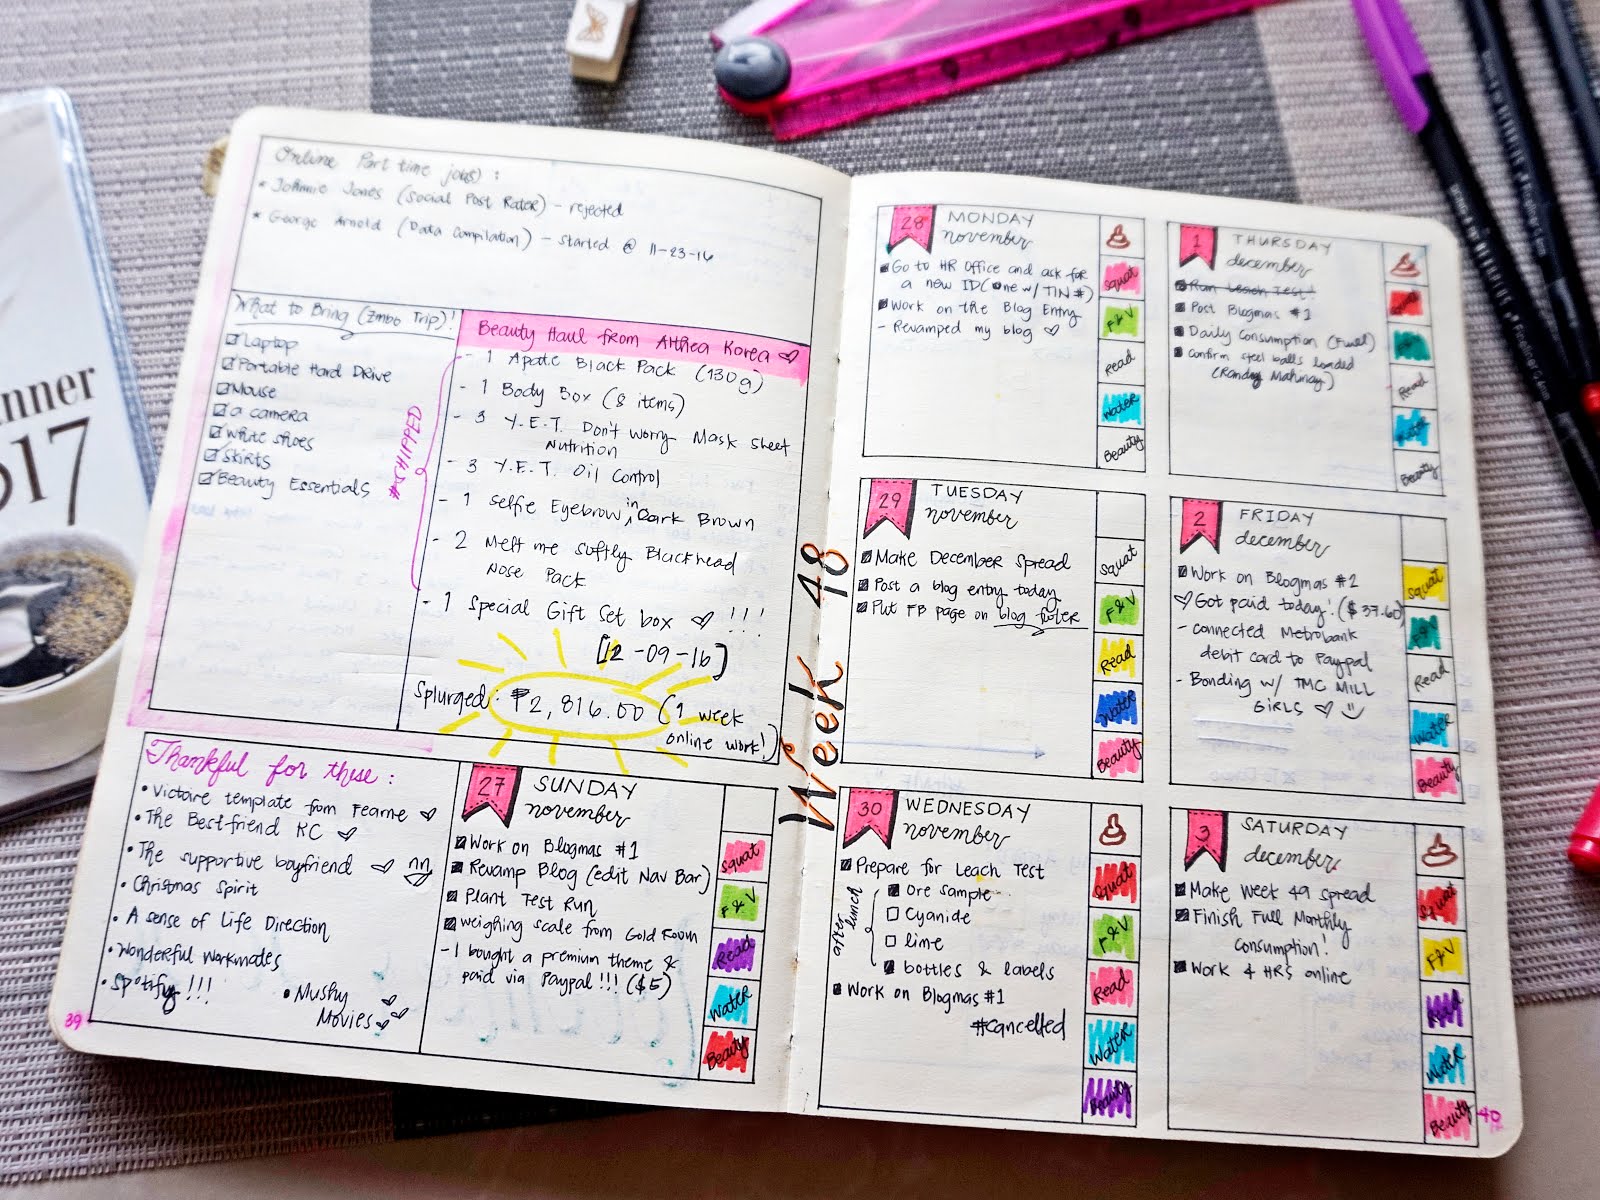 Online Part time job(s) :
* Johmie Jones (Social Post Rater) - rejected
* George Arnold (Data Compilation) - started @ 11-23-16
What to Bring (Zmbo Trip)!
Laptop
Portable Hard Drive
Mouse
a camera
White shoes
Skirts
Beauty Essentials
#SHIPPED
Beauty Haul from Althea Korea
- 1 Apatc Black Pack (130g)
- 1 Body Box (8 items)
- 3 Y.E.T. Don't Worry Mask Sheet
Nutrition
- 3 Y.E.T. Oil Control
- 1 Selfie Eyebrow in Dark Brown
- 2 Melt me softly Blackhead
Nose Pack
- 1 Special Gift Set box !!!
[12-09-16]
Splurged: ₱2,816.00 (1 week
online work!)
Thankful for these :
• Victoire template from Fearne
• The Bestfriend KC
• The supportive boyfriend
• Christmas Spirit
• A sense of Life Direction
• Wonderful Workmates
• Spotify!!!
• Mushy
Movies
39
27 SUNDAY
november
Work on Blogmas #1
Revamp Blog (edit Nav Bar)
Plant Test Run
weighing scale from Gold Room
- I bought a premium theme &
paid via Paypal!!! ($5)
Squat
F & V
Read
Water
Beauty
Week 48
28 MONDAY
november
Go to HR Office and ask for
a new ID (one w/ TIN #)
Work on the Blog Entry
- Revamped my blog
Squat
F & V
Read
Water
Beauty
29 TUESDAY
november
Make December Spread
Post a blog entry today
Put FB page on blog footer
Squat
F & V
Read
Water
Beauty
30 WEDNESDAY
november
Prepare for Leach Test
after lunch
Ore sample
Cyanide
lime
bottles & labels
Work on Blogmas #1
#cancelled
Squat
F & V
Read
Water
Beauty
1 THURSDAY
december
Run Leach Test!
Post Blogmas #1
Daily Consumption (Fuel)
Confirm steel balls loaded
(Randy Mahinay)
Squat
F & V
Read
Water
Beauty
2 FRIDAY
december
Work on Blogmas #2
Got paid today! ($37.60)
- connected Metrobank
debit card to Paypal
- Bonding w/ TMC MILL
GIRLS
Squat
F & V
Read
Water
Beauty
3 SATURDAY
december
Make Week 49 spread
Finish Full Monthly
Consumption!
Work 4 HRS online
Squat
F & V
Read
Water
Beauty
40